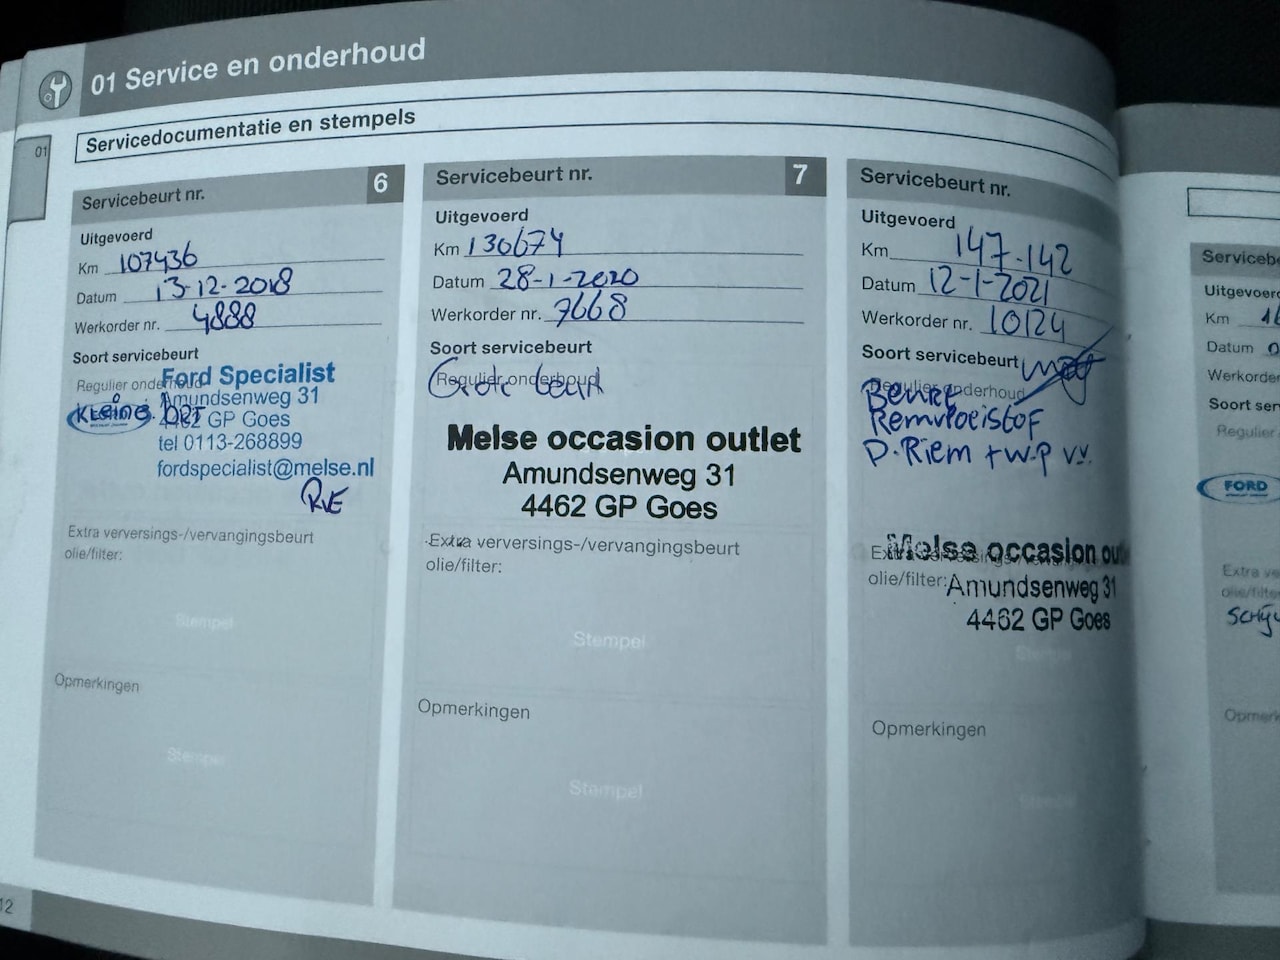 01 Service en onderhoud
01
Servicedocumentatie en stempels
Servicebeurt nr. 6
Uitgevoerd
Km 107436
Datum 13-12-2018
Werkorder nr. 4888
Soort servicebeurt
Regulier onderhoud
Ford Specialist
Amundsenweg 31
Kleine BRT
4462 GP Goes
tel 0113-268899
fordspecialist@melse.nl
RvE
Extra verversings-/vervangingsbeurt
olie/filter:
Stempel
Opmerkingen
Stempel
Servicebeurt nr. 7
Uitgevoerd
Km 130674
Datum 28-1-2020
Werkorder nr. 7668
Soort servicebeurt
Regulier onderhoud
Grote beurt
Melse occasion outlet
Amundsenweg 31
4462 GP Goes
Extra verversings-/vervangingsbeurt
olie/filter:
Stempel
Opmerkingen
Stempel
Servicebeurt nr.
Uitgevoerd
Km 147-142
Datum 12-1-2021
Werkorder nr. 10124
Soort servicebeurt
Regulier onderhoud
Beurt
Remvloeistof
D.Riem + w.p v.v.
Melse occasion outl
Extra
olie/filter:
Amundsenweg 31
4462 GP Goes
Stempel
Opmerkingen
Stempel
12
Serviceb
Uitgevoerd
Km
Datum
Werkorder
Soort serv
Regulier
FORD
Extra ve
olie/filte
Opmerk